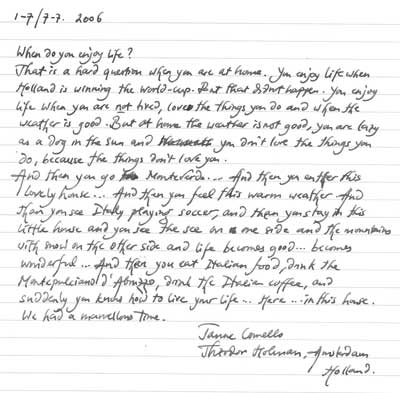 1-7/7-7. 2006
When do you enjoy life?
That is a hard question when you are at home. You enjoy life when
Holland is winning the world-cup. But that didn't happen. You enjoy
life when you are not tired, love the things you do and when the
weather is good. But at home the weather is not good, you are lazy
as a dog in the sun and you don't love the things you
do, because the things don't love you.
And then you go Monteverde... And then you enter this
lovely house... And then you feel this warm weather And
than you see Italy playing soccer, and then you stay in this
little house and you see the see on one side and the mountains
with snow on the other side and life becomes good... becomes
wonderful... And then you eat Italian food, drink the
Montepulciano d'Abruzzo, drink the Italian coffee, and
suddenly you know how to live your life... Here... in this house.
We had a marvellous time.
Theodor Holman, Amsterdam
Holland.